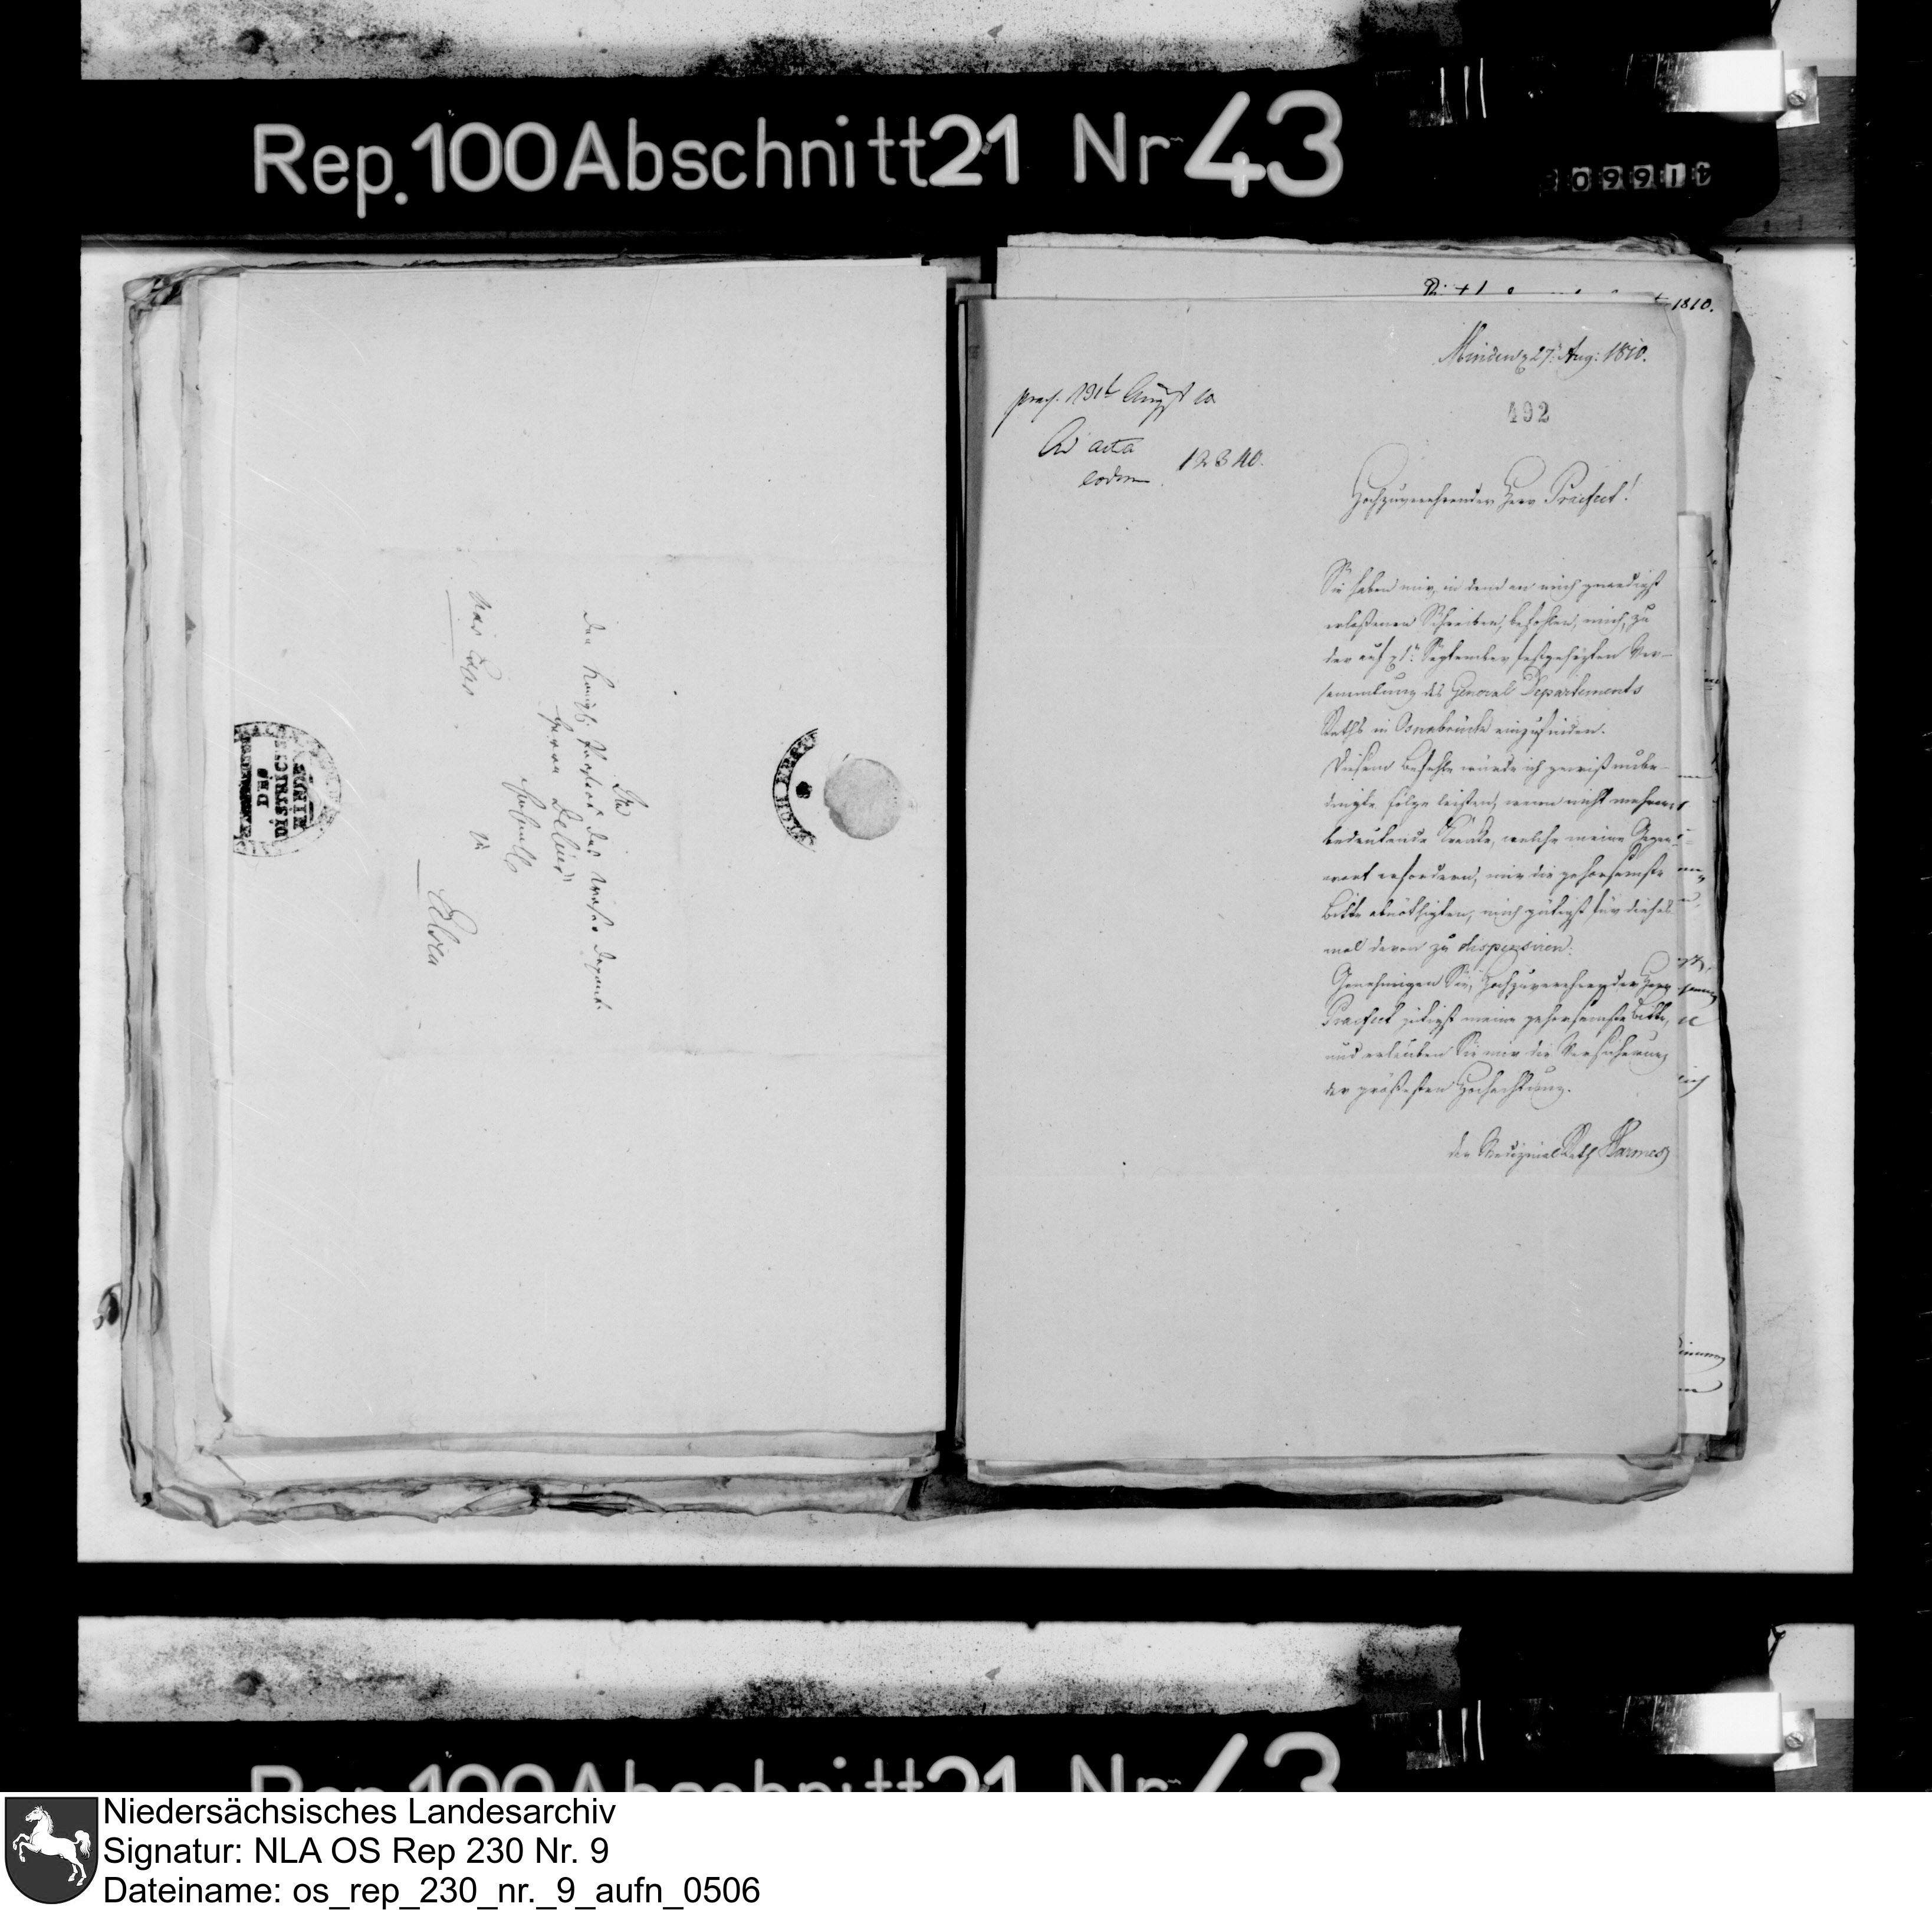 Rep. 100 Abschnitt 21 Nr 43
An
Den Königl. Praefect des Weser Depart.
Herrn Delius
zu
DES
DISTRICTS
MINDEN
1810.
Minden d 27t. Aug: 1810.
492
praes. d 31t Augst
Ad acta
eodem 12340.
Hochzuverehrender Herr Praefect!
Sie haben mir, in dem an mich gnädigst
erlaßenen Schreiben, befohlen, mich, zu
der auf d 1t. September festgesezten Ver-
sammlung des General Departements
Raths in Osnabrück einzufinden.
Diesem Befehle würde ich gewiß unbe-
dingte Folge leisten, wenn nicht mehrere
bedeutende Kranke, welche meine Gegen-
wart erfordern, mir die gehorsamste
Bitte abnöthigten, mich gütigst für dieses
mal davon zu dispensiren.
Genehmigen Sie, Hochzuverehrender Herr
Praefect gütigst meine gehorsamste Bitte,
und erlauben Sie mir die Versicherung
der größesten Hochachtung.
der Medizinal Rath Harmes
Rep. 100 Abschnitt 21 Nr 43
Niedersächsisches Landesarchiv
Signatur: NLA OS Rep 230 Nr. 9
Dateiname: os_rep_230_nr._9_aufn_0506